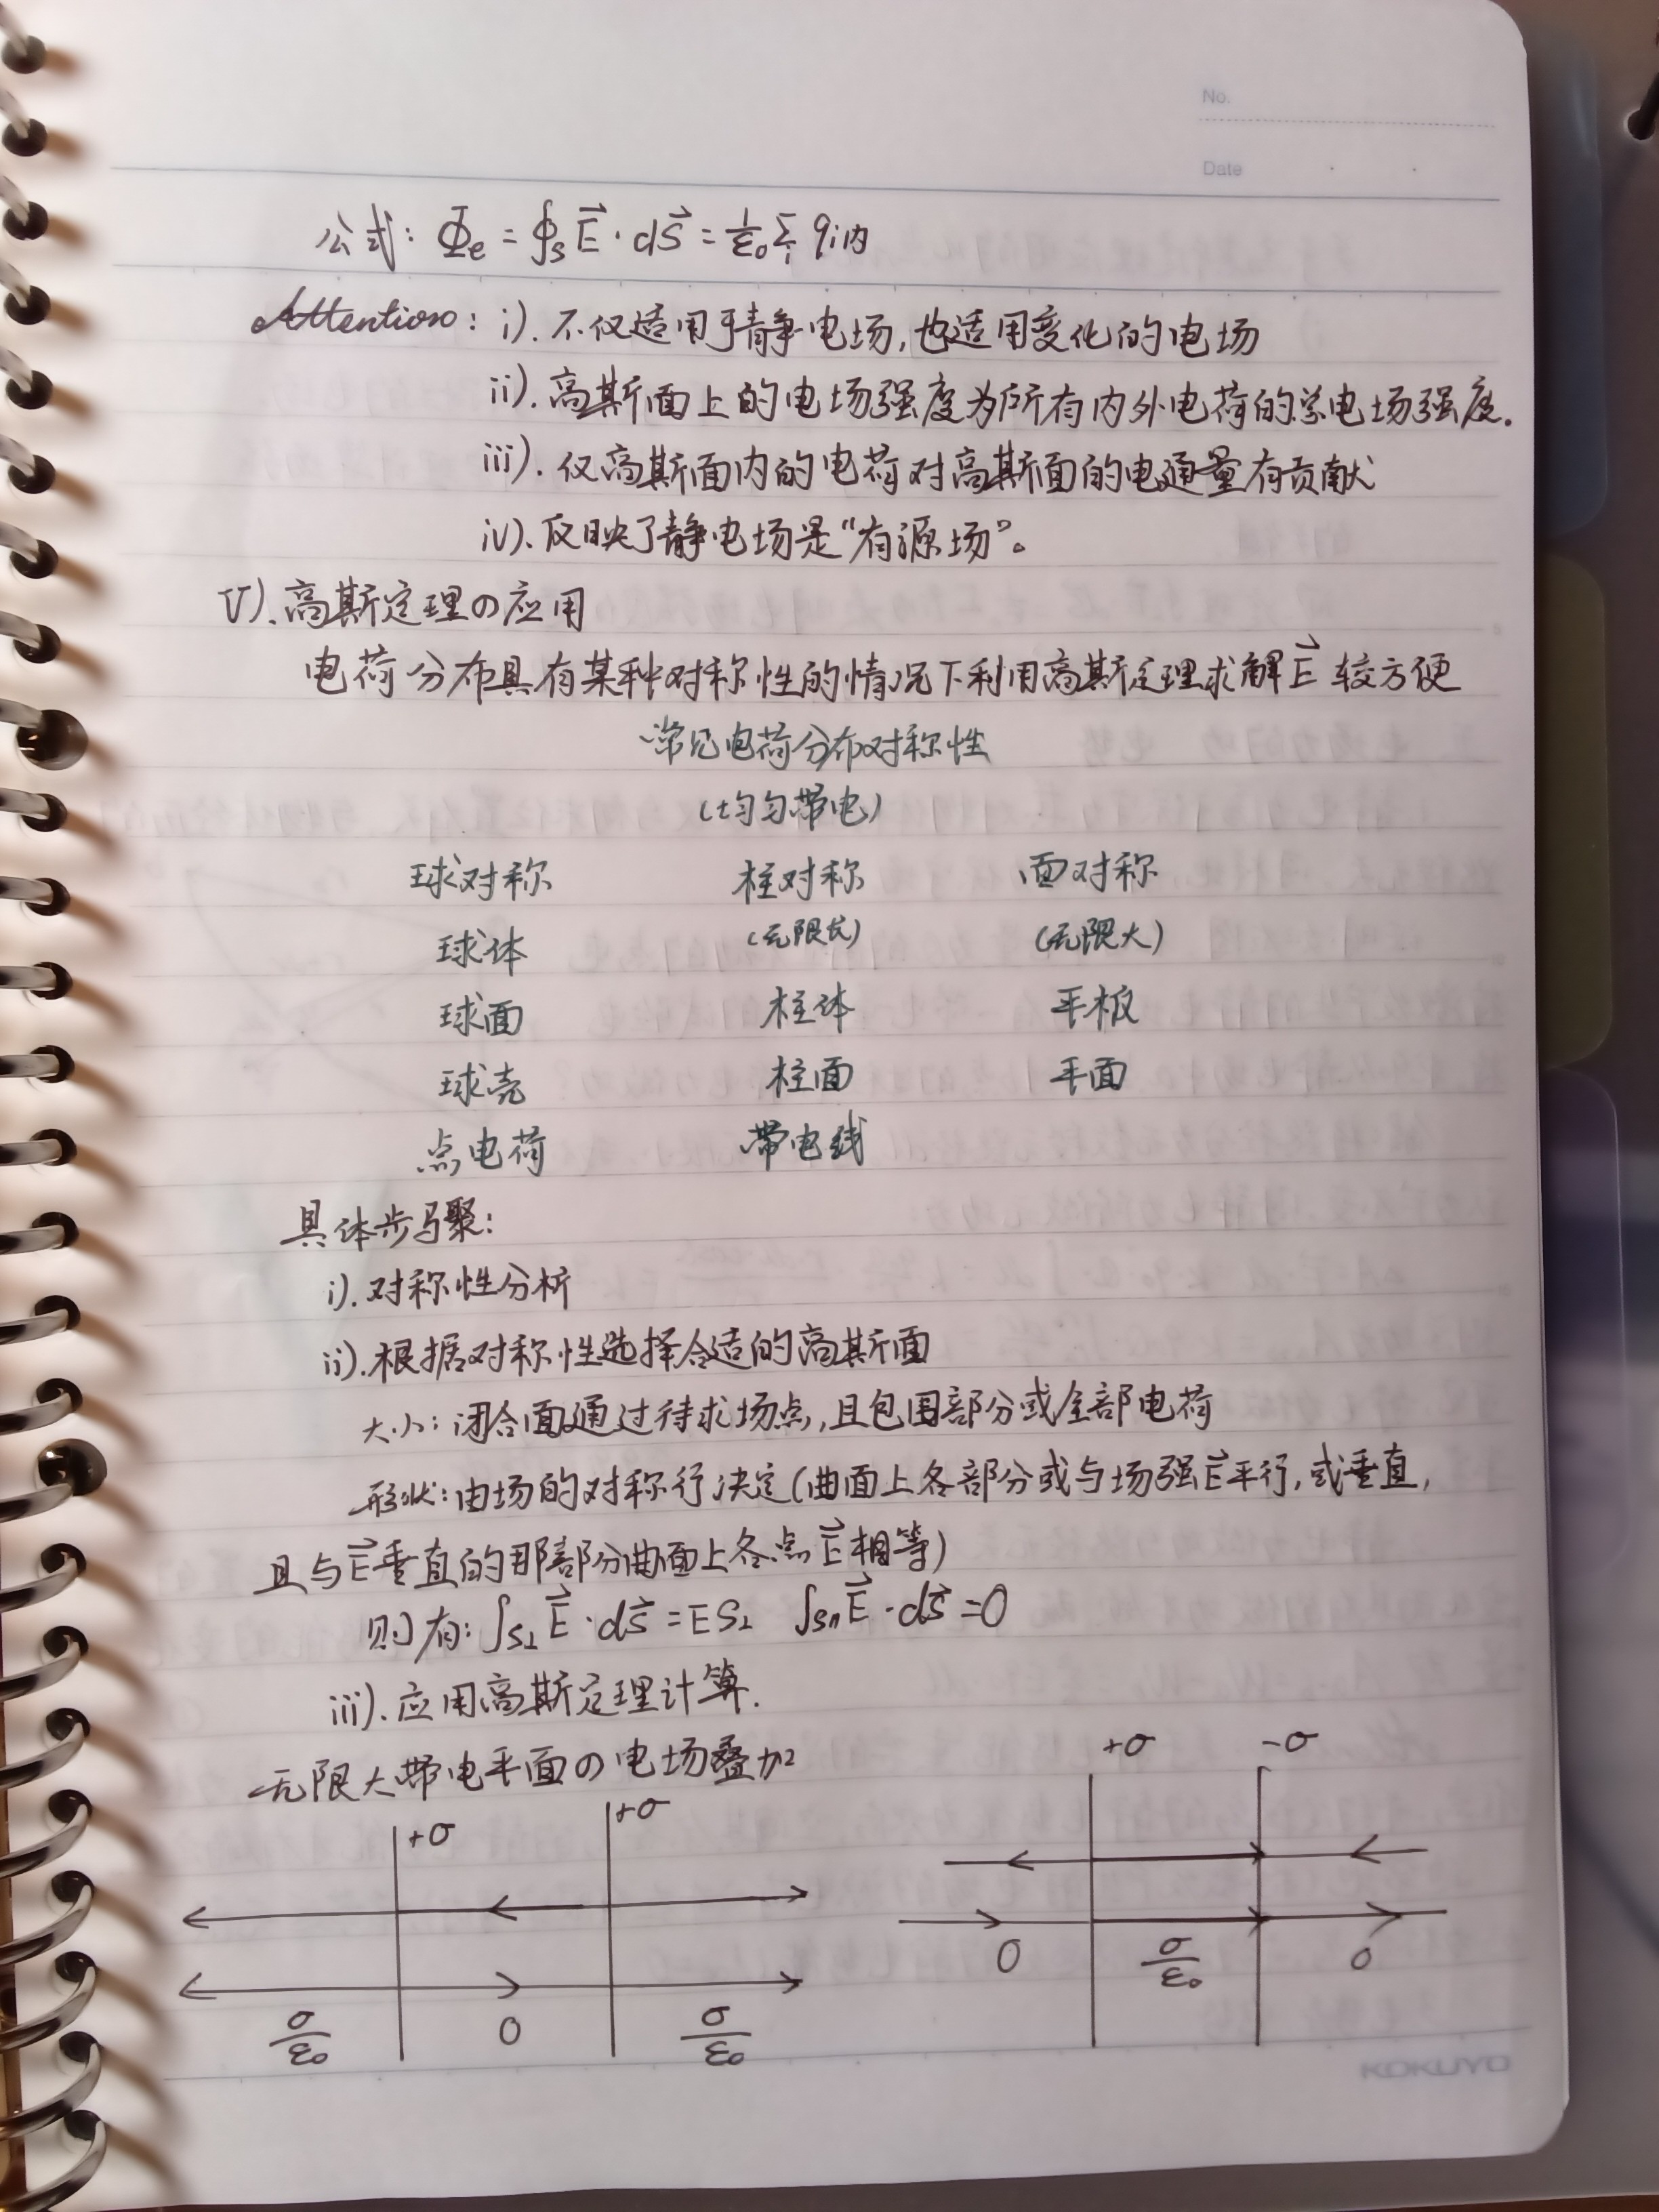 No.
Date
公式: Φe = ∮s E⃗ · dS⃗ = 1/ε₀ Σi qi内
Attention: i). 不仅适用于静电场, 也适用变化的电场
ii). 高斯面上的电场强度为所有内外电荷的总电场强度.
iii). 仅高斯面内的电荷对高斯面的电通量有贡献
iv). 反映了静电场是“有源场”。
V). 高斯定理の应用
电荷分布具有某种对称性的情况下利用高斯定理求解E⃗ 较方便
常见电荷分布对称性
(均匀带电)
球对称 柱对称 面对称
球体 (无限长) (无限大)
球面 柱体 平板
球壳 柱面 平面
点电荷 带电线
具体步骤:
i). 对称性分析
ii). 根据对称性选择合适的高斯面
大小: 闭合面通过待求场点, 且包围部分或全部电荷
形状: 由场的对称行决定(曲面上各部分或与场强E⃗平行, 或垂直,
且与E⃗垂直的那部分曲面上各点E⃗相等)
则有: ∫s⊥ E⃗ · dS⃗ = ES⊥ ∫s∥ E⃗ · dS⃗ = 0
iii). 应用高斯定理计算.
无限大带电平面の电场叠加
+σ +σ +σ -σ
0 σ/ε₀ 0
σ/ε₀ 0 σ/ε₀
KOKUYO